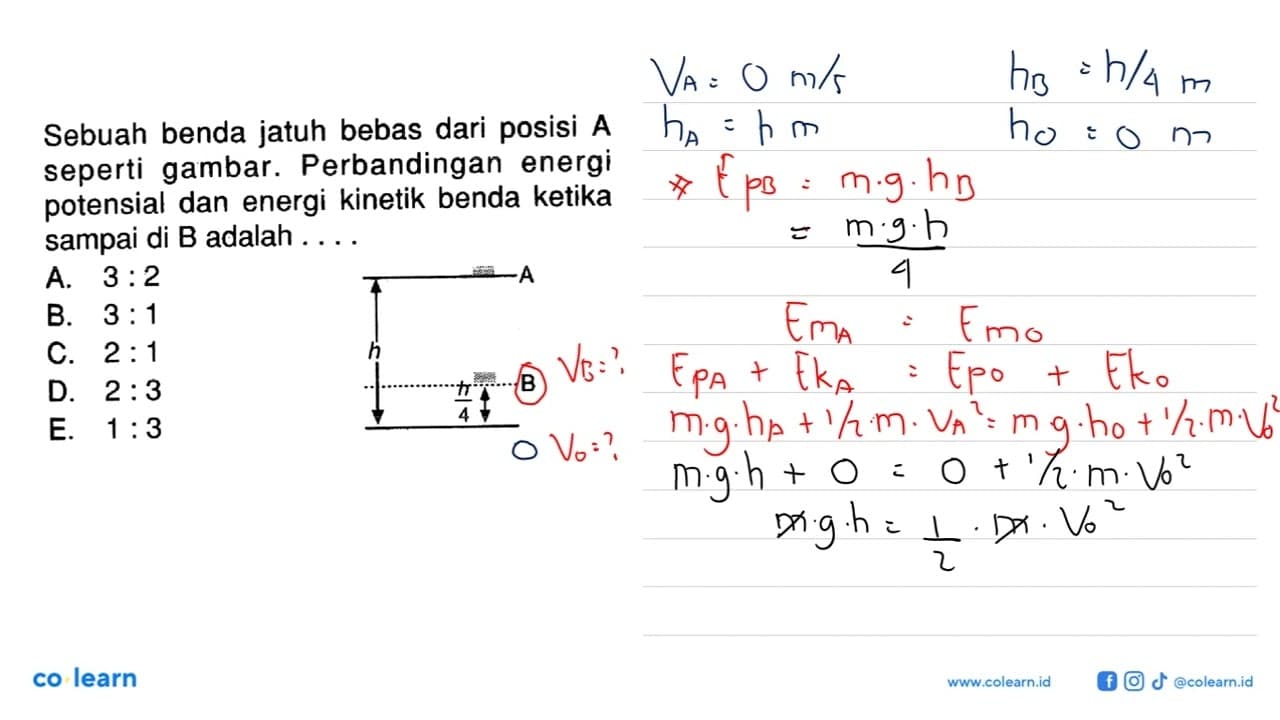 Sebuah benda jatuh bebas dari posisi A
seperti gambar. Perbandingan energi
potensial dan energi kinetik benda ketika
sampai di B adalah . . . .
A. 3 : 2
B. 3 : 1
C. 2 : 1
D. 2 : 3
E. 1 : 3
A
h
h/4
B
V_B = ?
O V_o = ?
V_A = 0 m/s
h_A = h m
h_B = h/4 m
h_O = 0 m
* E_pB = m.g.h_B
= m.g.h/4
E_mA = E_mO
E_pA + E_kA = E_pO + E_kO
m.g.h_A + 1/2.m.V_A² = m g.h_O + 1/2.m.V_o²
m.g.h + 0 = 0 + 1/2.m.V_o²
m.g.h = 1/2 . m . V_o²
co learn
www.colearn.id
@colearn.id